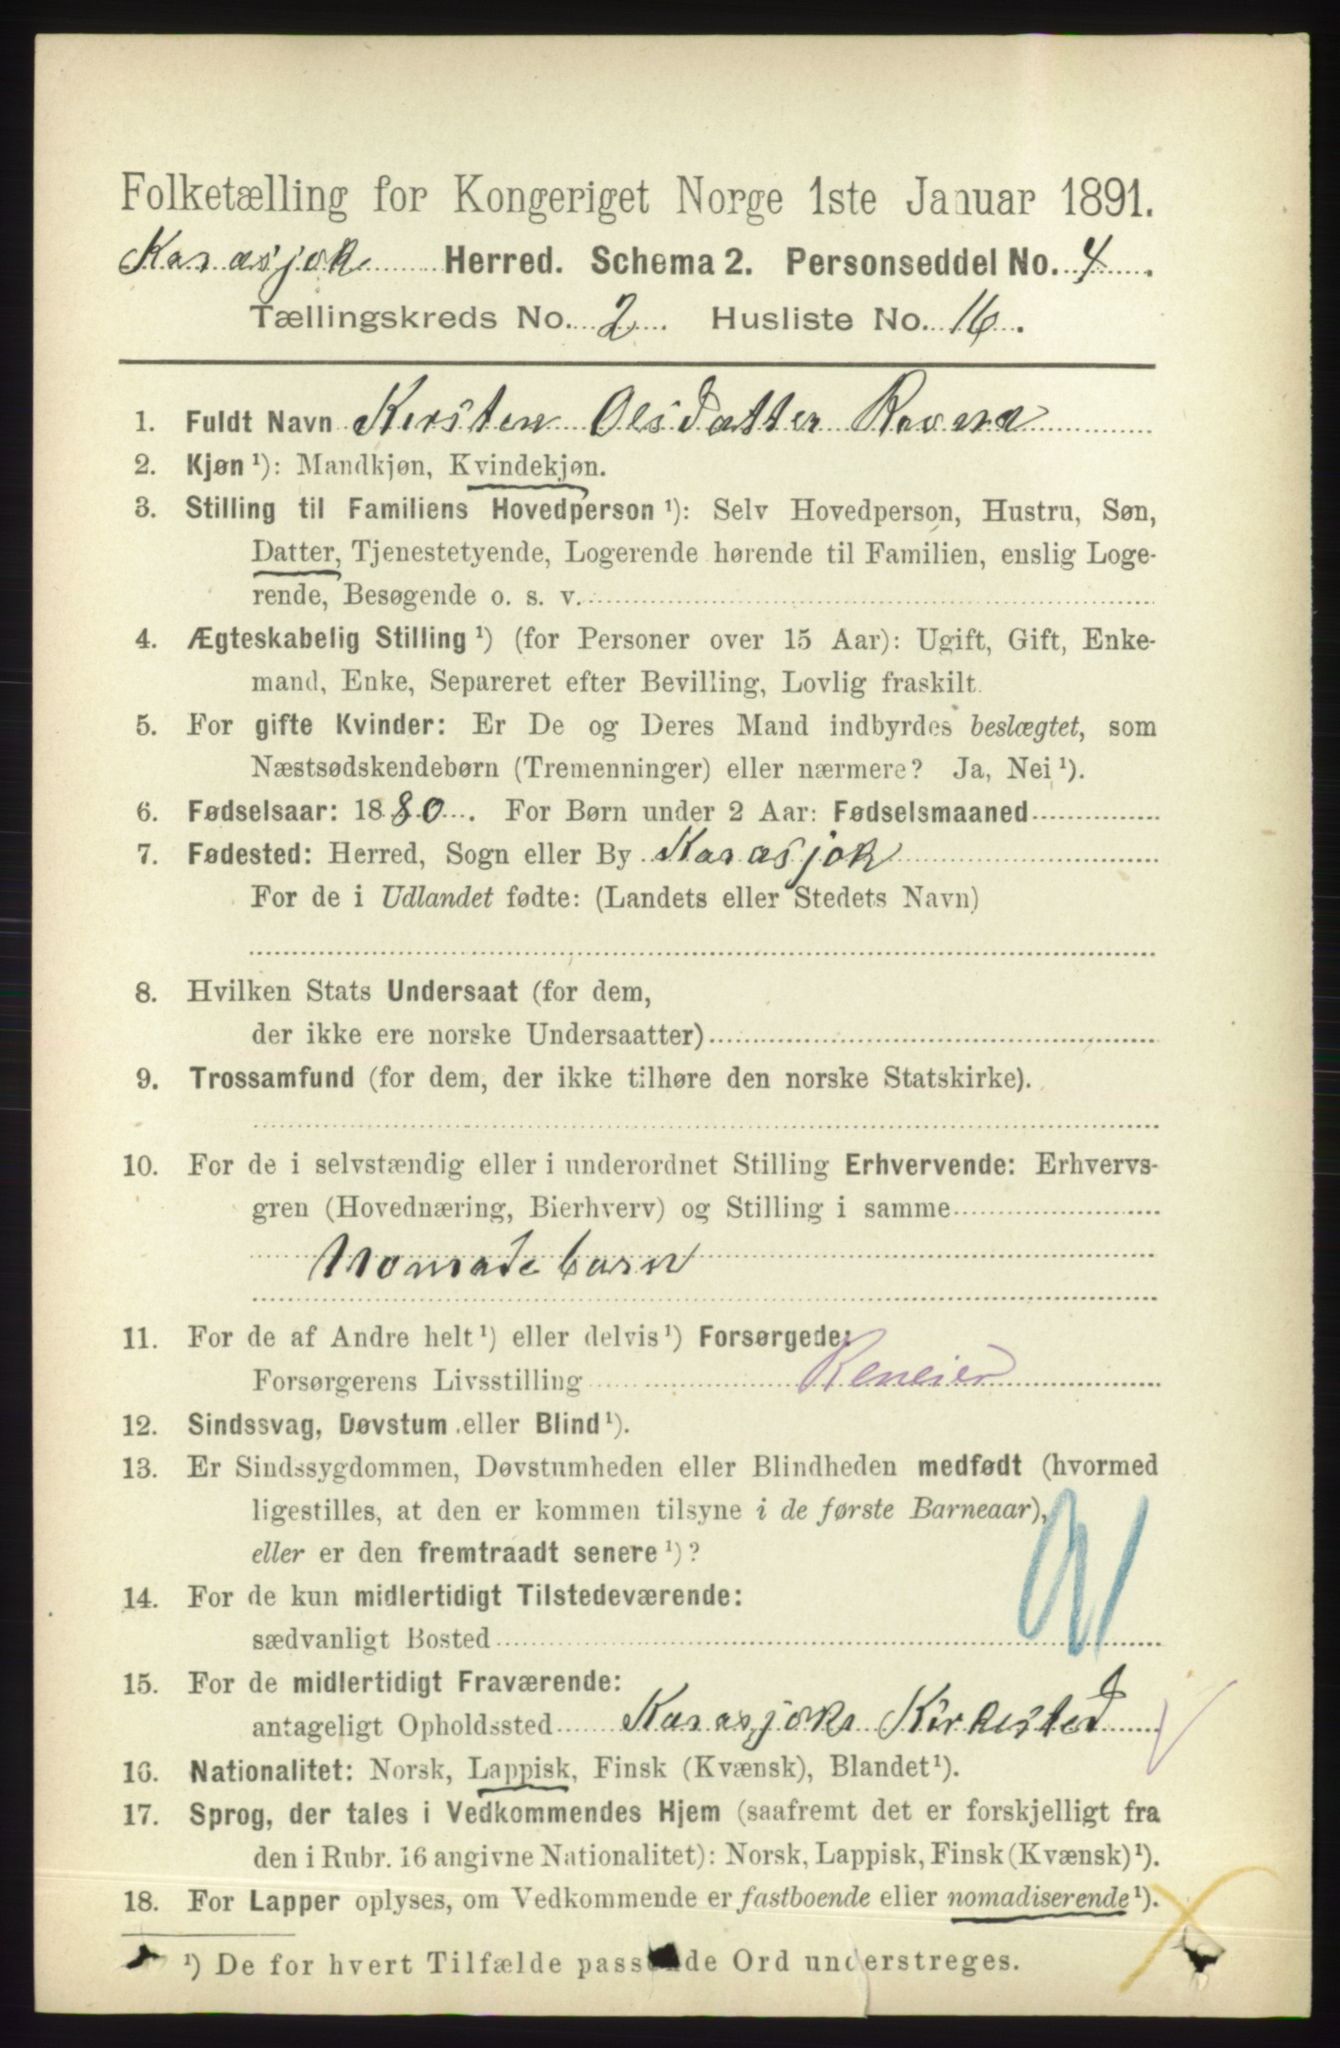 Folketælling for Kongeriget Norge 1ste Januar 1891.
Karasjok Herred. Schema 2. Personseddel No. 4.
Tællingskreds No. 2. Husliste No. 16.
1. Fuldt Navn Kirsten Olsdatter Ravna
2. Kjøn ¹): Mandkjøn, Kvindekjøn.
3. Stilling til Familiens Hovedperson ¹): Selv Hovedperson, Hustru, Søn,
Datter, Tjenestetyende, Logerende hørende til Familien, enslig Loge-
rende, Besøgende o. s. v.
4. Ægteskabelig Stilling ¹) (for Personer over 15 Aar): Ugift, Gift, Enke-
mand, Enke, Separeret efter Bevilling, Lovlig fraskilt.
5. For gifte Kvinder: Er De og Deres Mand indbyrdes beslægtet, som
Næstsødskendebørn (Tremenninger) eller nærmere? Ja, Nei ¹).
6. Fødselsaar: 1880. For Børn under 2 Aar: Fødselsmaaned
7. Fødested: Herred, Sogn eller By Karasjok
For de i Udlandet fødte: (Landets eller Stedets Navn)
8. Hvilken Stats Undersaat (for dem,
der ikke ere norske Undersaatter)
9. Trossamfund (for dem, der ikke tilhøre den norske Statskirke).
10. For de i selvstændig eller i underordnet Stilling Erhvervende: Erhvervs-
gren (Hovednæring, Bierhverv) og Stilling i samme
Nomadebarn
11. For de af Andre helt ¹) eller delvis ¹) Forsørgede:
Forsørgerens Livsstilling Reneier
12. Sindssvag, Døvstum eller Blind ¹).
13. Er Sindssygdommen, Døvstumheden eller Blindheden medfødt (hvormed
ligestilles, at den er kommen tilsyne i de første Barneaar),
eller er den fremtraadt senere ¹)?
14. For de kun midlertidigt Tilstedeværende:
sædvanligt Bosted
15. For de midlertidigt Fraværende:
antageligt Opholdssted Karasjok Kirkested
16. Nationalitet: Norsk, Lappisk, Finsk (Kvænsk), Blandet ¹).
17. Sprog, der tales i Vedkommendes Hjem (saafremt det er forskjelligt fra
den i Rubr. 16 angivne Nationalitet): Norsk, Lappisk, Finsk (Kvænsk) ¹).
18. For Lapper oplyses, om Vedkommende er fastboende eller nomadiserende ¹).
¹) De for hvert Tilfælde passende Ord understreges.